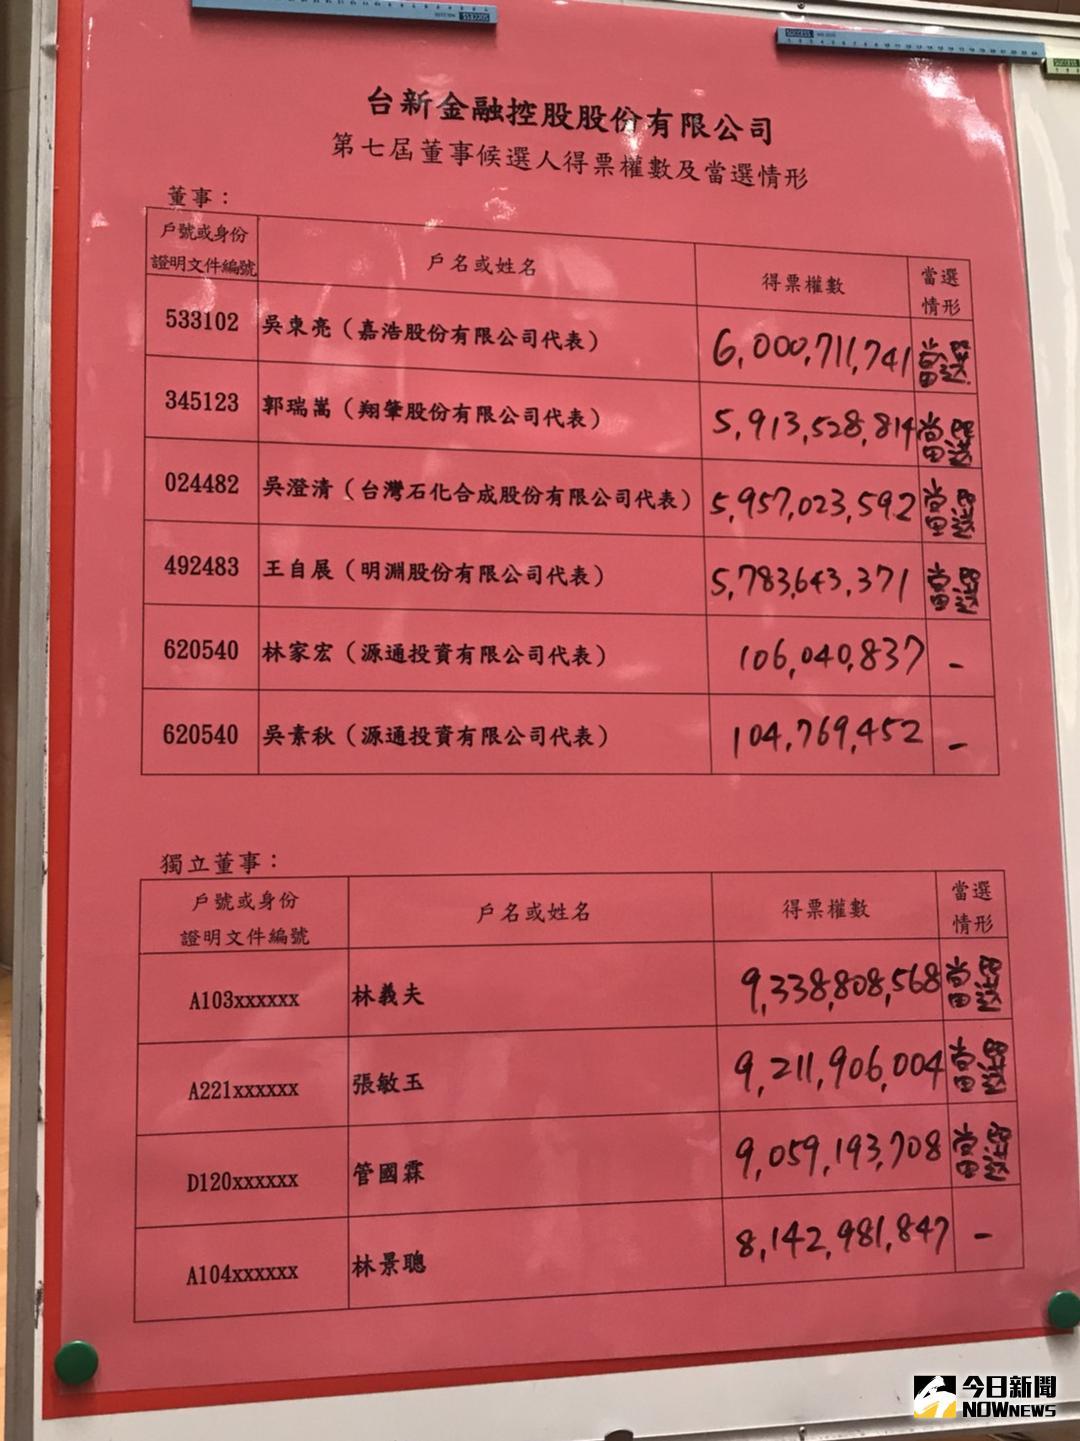 SUCCESS
SUCCESS
SUCCESS
台新金融控股股份有限公司
第七屆董事候選人得票權數及當選情形
董事：
戶號或身份
證明文件編號
戶名或姓名
得票權數
當選
情形
533102 吳東亮（嘉浩股份有限公司代表） 6,000,711,741 當選
345123 郭瑞嵩（翔肇股份有限公司代表） 5,913,528,814 當選
024482 吳澄清（台灣石化合成股份有限公司代表） 5,957,023,592 當選
492483 王自展（明淵股份有限公司代表） 5,783,643,371 當選
620540 林家宏（源通投資有限公司代表） 106,040,837 -
620540 吳素秋（源通投資有限公司代表） 104,769,452 -
獨立董事：
戶號或身份
證明文件編號
戶名或姓名
得票權數
當選
情形
A103xxxxxx 林義夫 9,338,808,568 當選
A221xxxxxx 張敏玉 9,211,906,004 當選
D120xxxxxx 管國霖 9,059,193,708 當選
A104xxxxxx 林景聰 8,142,981,847 -
今日新聞
NOWNEWS